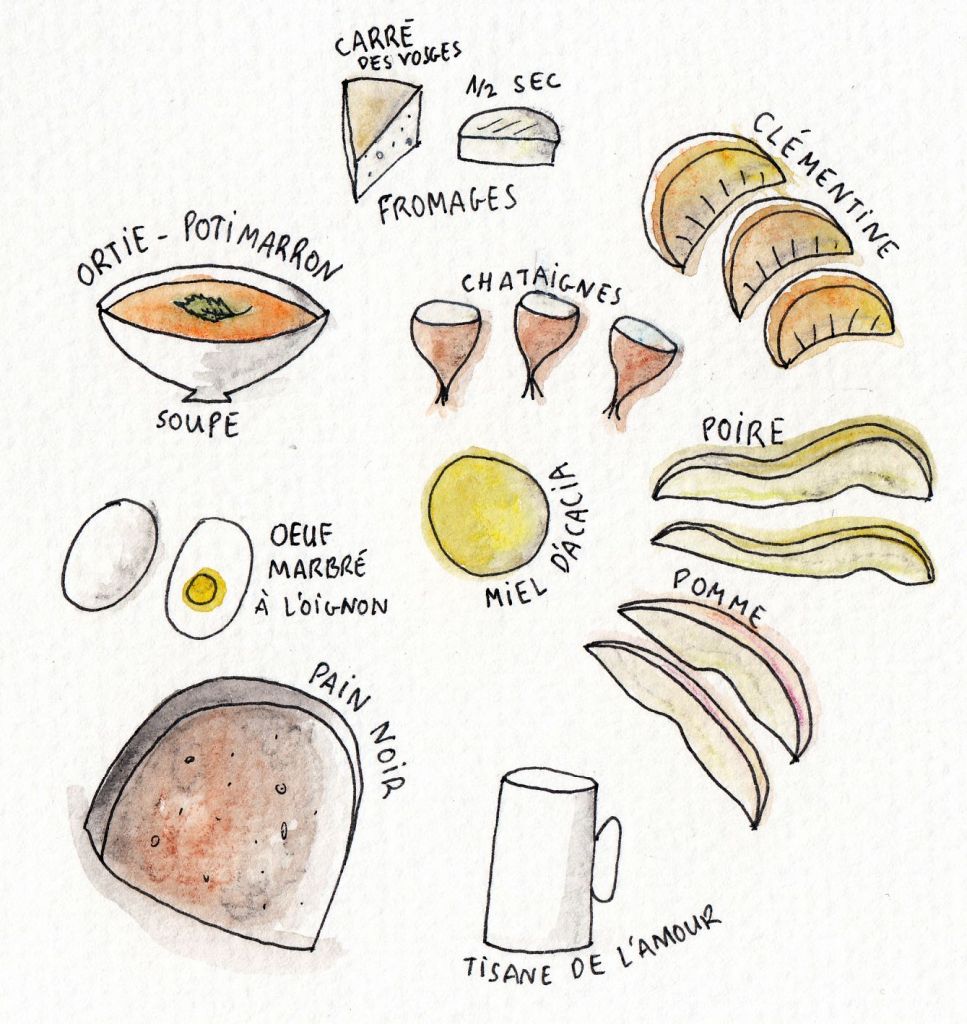 CARRÉ
DES VOSGES
1/2 SEC
FROMAGES
CLÉMENTINE
ORTIE - POTIMARRON
SOUPE
CHATAIGNES
POIRE
OEUF
MARBRÉ
À L'OIGNON
MIEL D'ACACIA
POMME
PAIN NOIR
TISANE DE L'AMOUR